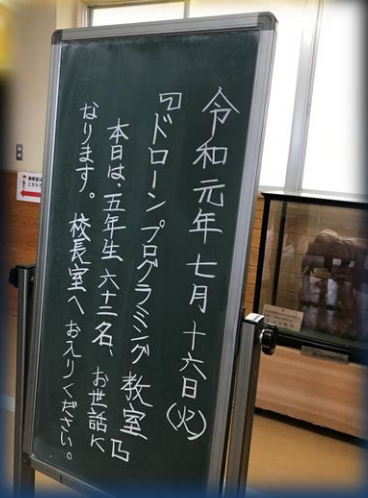 令和元年七月十六日(火)
『ドローンプログラミング教室』
本日は、五年生六十二名、お世話に
なります。校長室へお入りください。